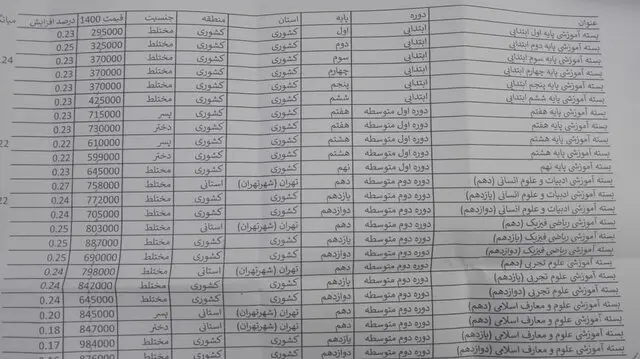 عنوان دوره پایه استان منطقه جنسیت قیمت 1400 درصد افزایش
بسته آموزشی پایه اول ابتدایی ابتدایی اول کشوری کشوری مختلط 295000 0.23
بسته آموزشی پایه دوم ابتدایی ابتدایی دوم کشوری کشوری مختلط 325000 0.25
بسته آموزشی پایه سوم ابتدایی ابتدایی سوم کشوری کشوری مختلط 370000 0.23
بسته آموزشی پایه چهارم ابتدایی ابتدایی چهارم کشوری کشوری مختلط 370000 0.23
بسته آموزشی پایه پنجم ابتدایی ابتدایی پنجم کشوری کشوری مختلط 370000 0.23
بسته آموزشی پایه ششم ابتدایی ابتدایی ششم کشوری کشوری مختلط 425000 0.23
بسته آموزشی پایه هفتم دوره اول متوسطه هفتم کشوری کشوری پسر 715000 0.23
بسته آموزشی پایه هفتم دوره اول متوسطه هفتم کشوری کشوری دختر 730000 0.23
بسته آموزشی پایه هشتم دوره اول متوسطه هشتم کشوری کشوری پسر 610000 0.22
بسته آموزشی پایه هشتم دوره اول متوسطه هشتم کشوری کشوری دختر 599000 0.22
بسته آموزشی پایه نهم دوره اول متوسطه نهم کشوری کشوری مختلط 645000 0.23
بسته آموزشی ادبیات و علوم انسانی (دهم) دوره دوم متوسطه دهم تهران (شهرتهران) استانی مختلط 758000 0.27
بسته آموزشی ادبیات و علوم انسانی (یازدهم) دوره دوم متوسطه یازدهم کشوری کشوری مختلط 772000 0.24
بسته آموزشی ادبیات و علوم انسانی (دوازدهم) دوره دوم متوسطه دوازدهم کشوری کشوری مختلط 705000 0.24
بسته آموزشی ریاضی فیزیک (دهم) دوره دوم متوسطه دهم تهران (شهرتهران) استانی مختلط 803000 0.25
بسته آموزشی ریاضی فیزیک (یازدهم) دوره دوم متوسطه یازدهم کشوری کشوری مختلط 887000 0.25
بسته آموزشی ریاضی فیزیک (دوازدهم) دوره دوم متوسطه دوازدهم کشوری کشوری مختلط 690000 0.25
بسته آموزشی علوم تجربی (دهم) دوره دوم متوسطه دهم تهران (شهرتهران) استانی مختلط 798000 0.24
بسته آموزشی علوم تجربی (یازدهم) دوره دوم متوسطه یازدهم کشوری کشوری مختلط 842000 0.24
بسته آموزشی علوم تجربی (دوازدهم) دوره دوم متوسطه دوازدهم کشوری کشوری مختلط 645000 0.24
بسته آموزشی علوم و معارف اسلامی (دهم) دوره دوم متوسطه دهم تهران (شهرتهران) استانی پسر 845000 0.20
بسته آموزشی علوم و معارف اسلامی (دهم) دوره دوم متوسطه دهم تهران (شهرتهران) استانی دختر 847000 0.18
بسته آموزشی علوم و معارف اسلامی (یازدهم) دوره دوم متوسطه یازدهم کشوری کشوری مختلط 984000 0.17
بسته آموزشی علوم و معارف اسلامی (دوازدهم) دوره دوم متوسطه دوازدهم کشوری کشوری مختلط